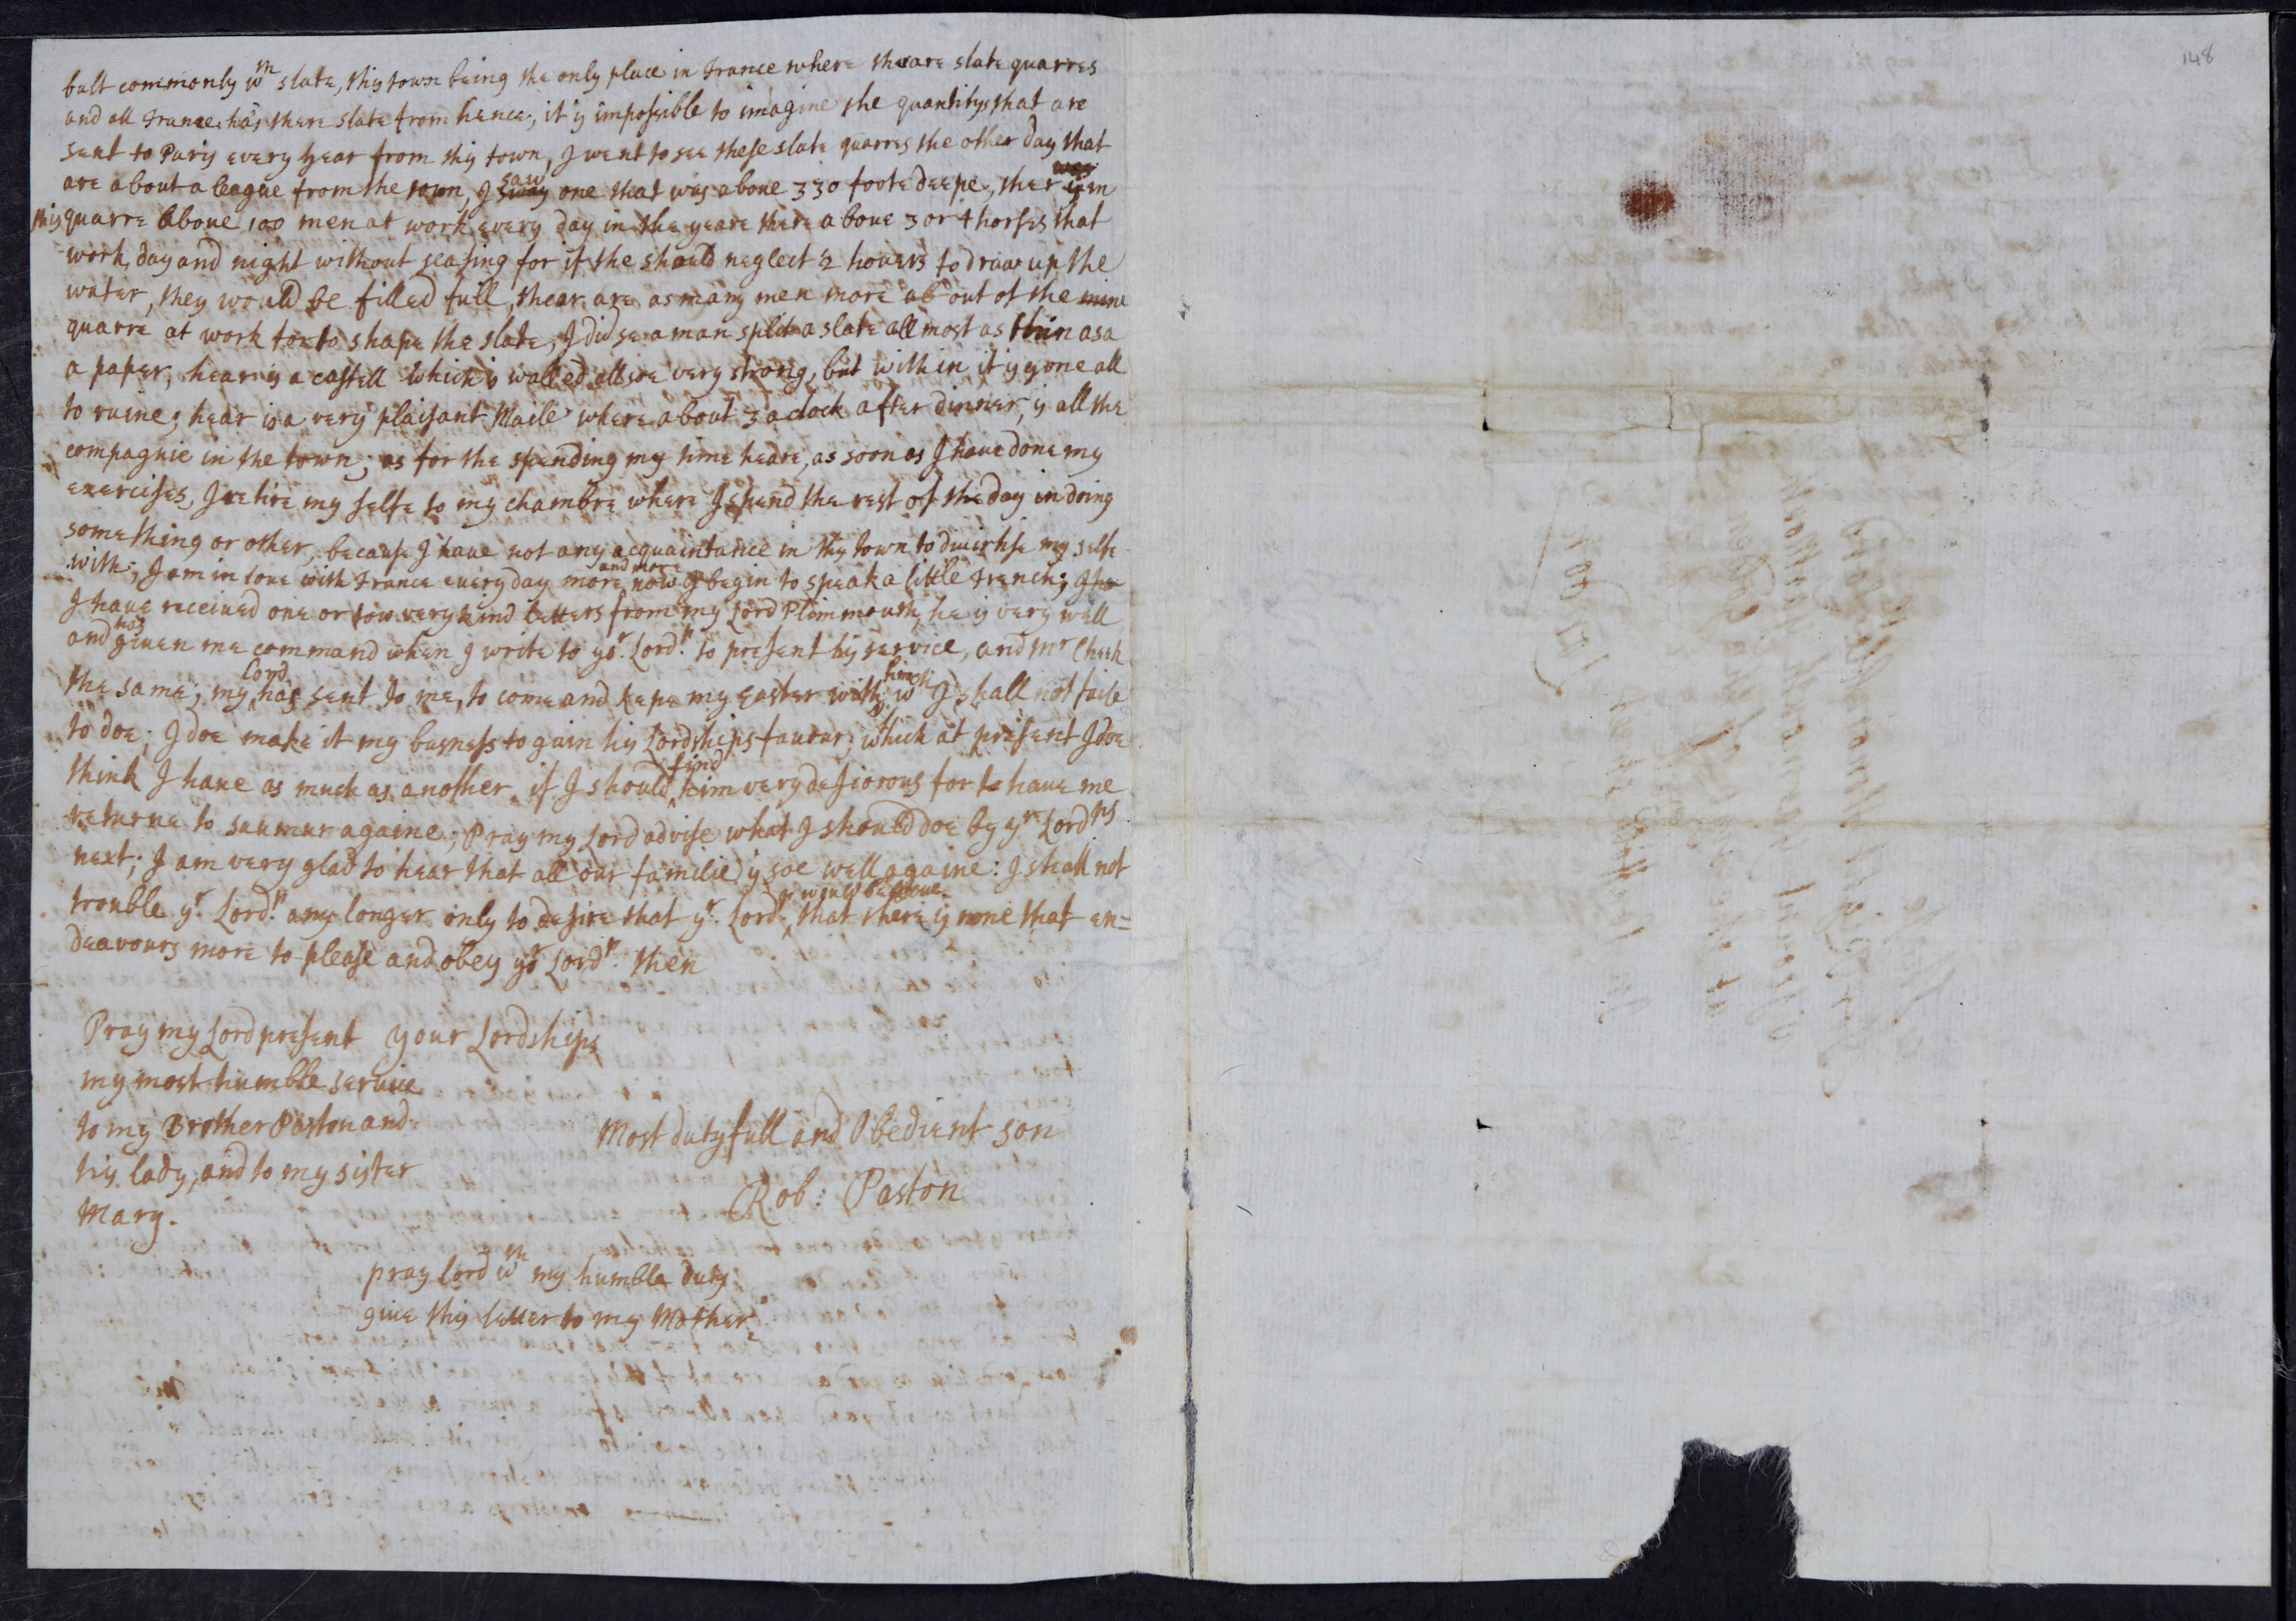 148
bult commonly wth slate, this town being the only place in France where thear are slate quarres
and all France has there slate from hence, it is impossible to imagine the quantitys that are
sent to Paris every year from this town, I went to see these slate quarres the other day that
are about a league from the town, I saw one that was aboue 330 foote deepe, ther is in
this quarre aboue 100 men at work every day in the yeare there aboue 3 or 4 horses that
work day and night without seasing for if the should neglect 2 houers to draw up the
water, they would be filled full, thear are as many men more about of the mine
quarre at work for to shape the slate, I did se a man split a slate allmost as thin as a
a paper, hear is a castell which is walled allsoe very strong, but within it is gone all
to ruine; hear is a very plaisant Maile where about 3 a clock after dinner, is all the
compagnie in the town; as for the spending my time heare, as soon as I haue done my
exercises, I retire my selfe to my chambre where I spend the rest of the day in doing
something or other, because I haue not any acquaintance in this town to diuertise my selfe
with; I am in loue with France euery day more and more now I begin to speak a little French;
I haue receiued one or tow very kind letters from my Lord Plimmouth, he is very well
and has giuen me command when I write to yor. Lordp. to present his service, and mr Cheek
the same; my Lord has sent to me, to come and kepe my Easter with him wch I shall not faile
to doe; I doe make it my busness to gain his Lordships fauour, which at present I doe
think I haue as much as another, if I should find him very desiorous for to haue me
returne to saumur againe; Pray my Lord advise what I should doe by yr Lordps
next; I am very glad to hear that all our familie is soe well againe: I shall not
trouble yr. Lordp. any longer only to desire that yr. Lordp. would beleeue that there is none that en=
deavours more to please and obey yor Lordp. then
Pray my Lord present your Lordships
my most humble seruice
to my Brother Paston and
his lady, and to my sister
Mary.
Most dutyfull and Obedient son
Rob: Paston
pray lord wth my humble duty
giue this letter to my Mother